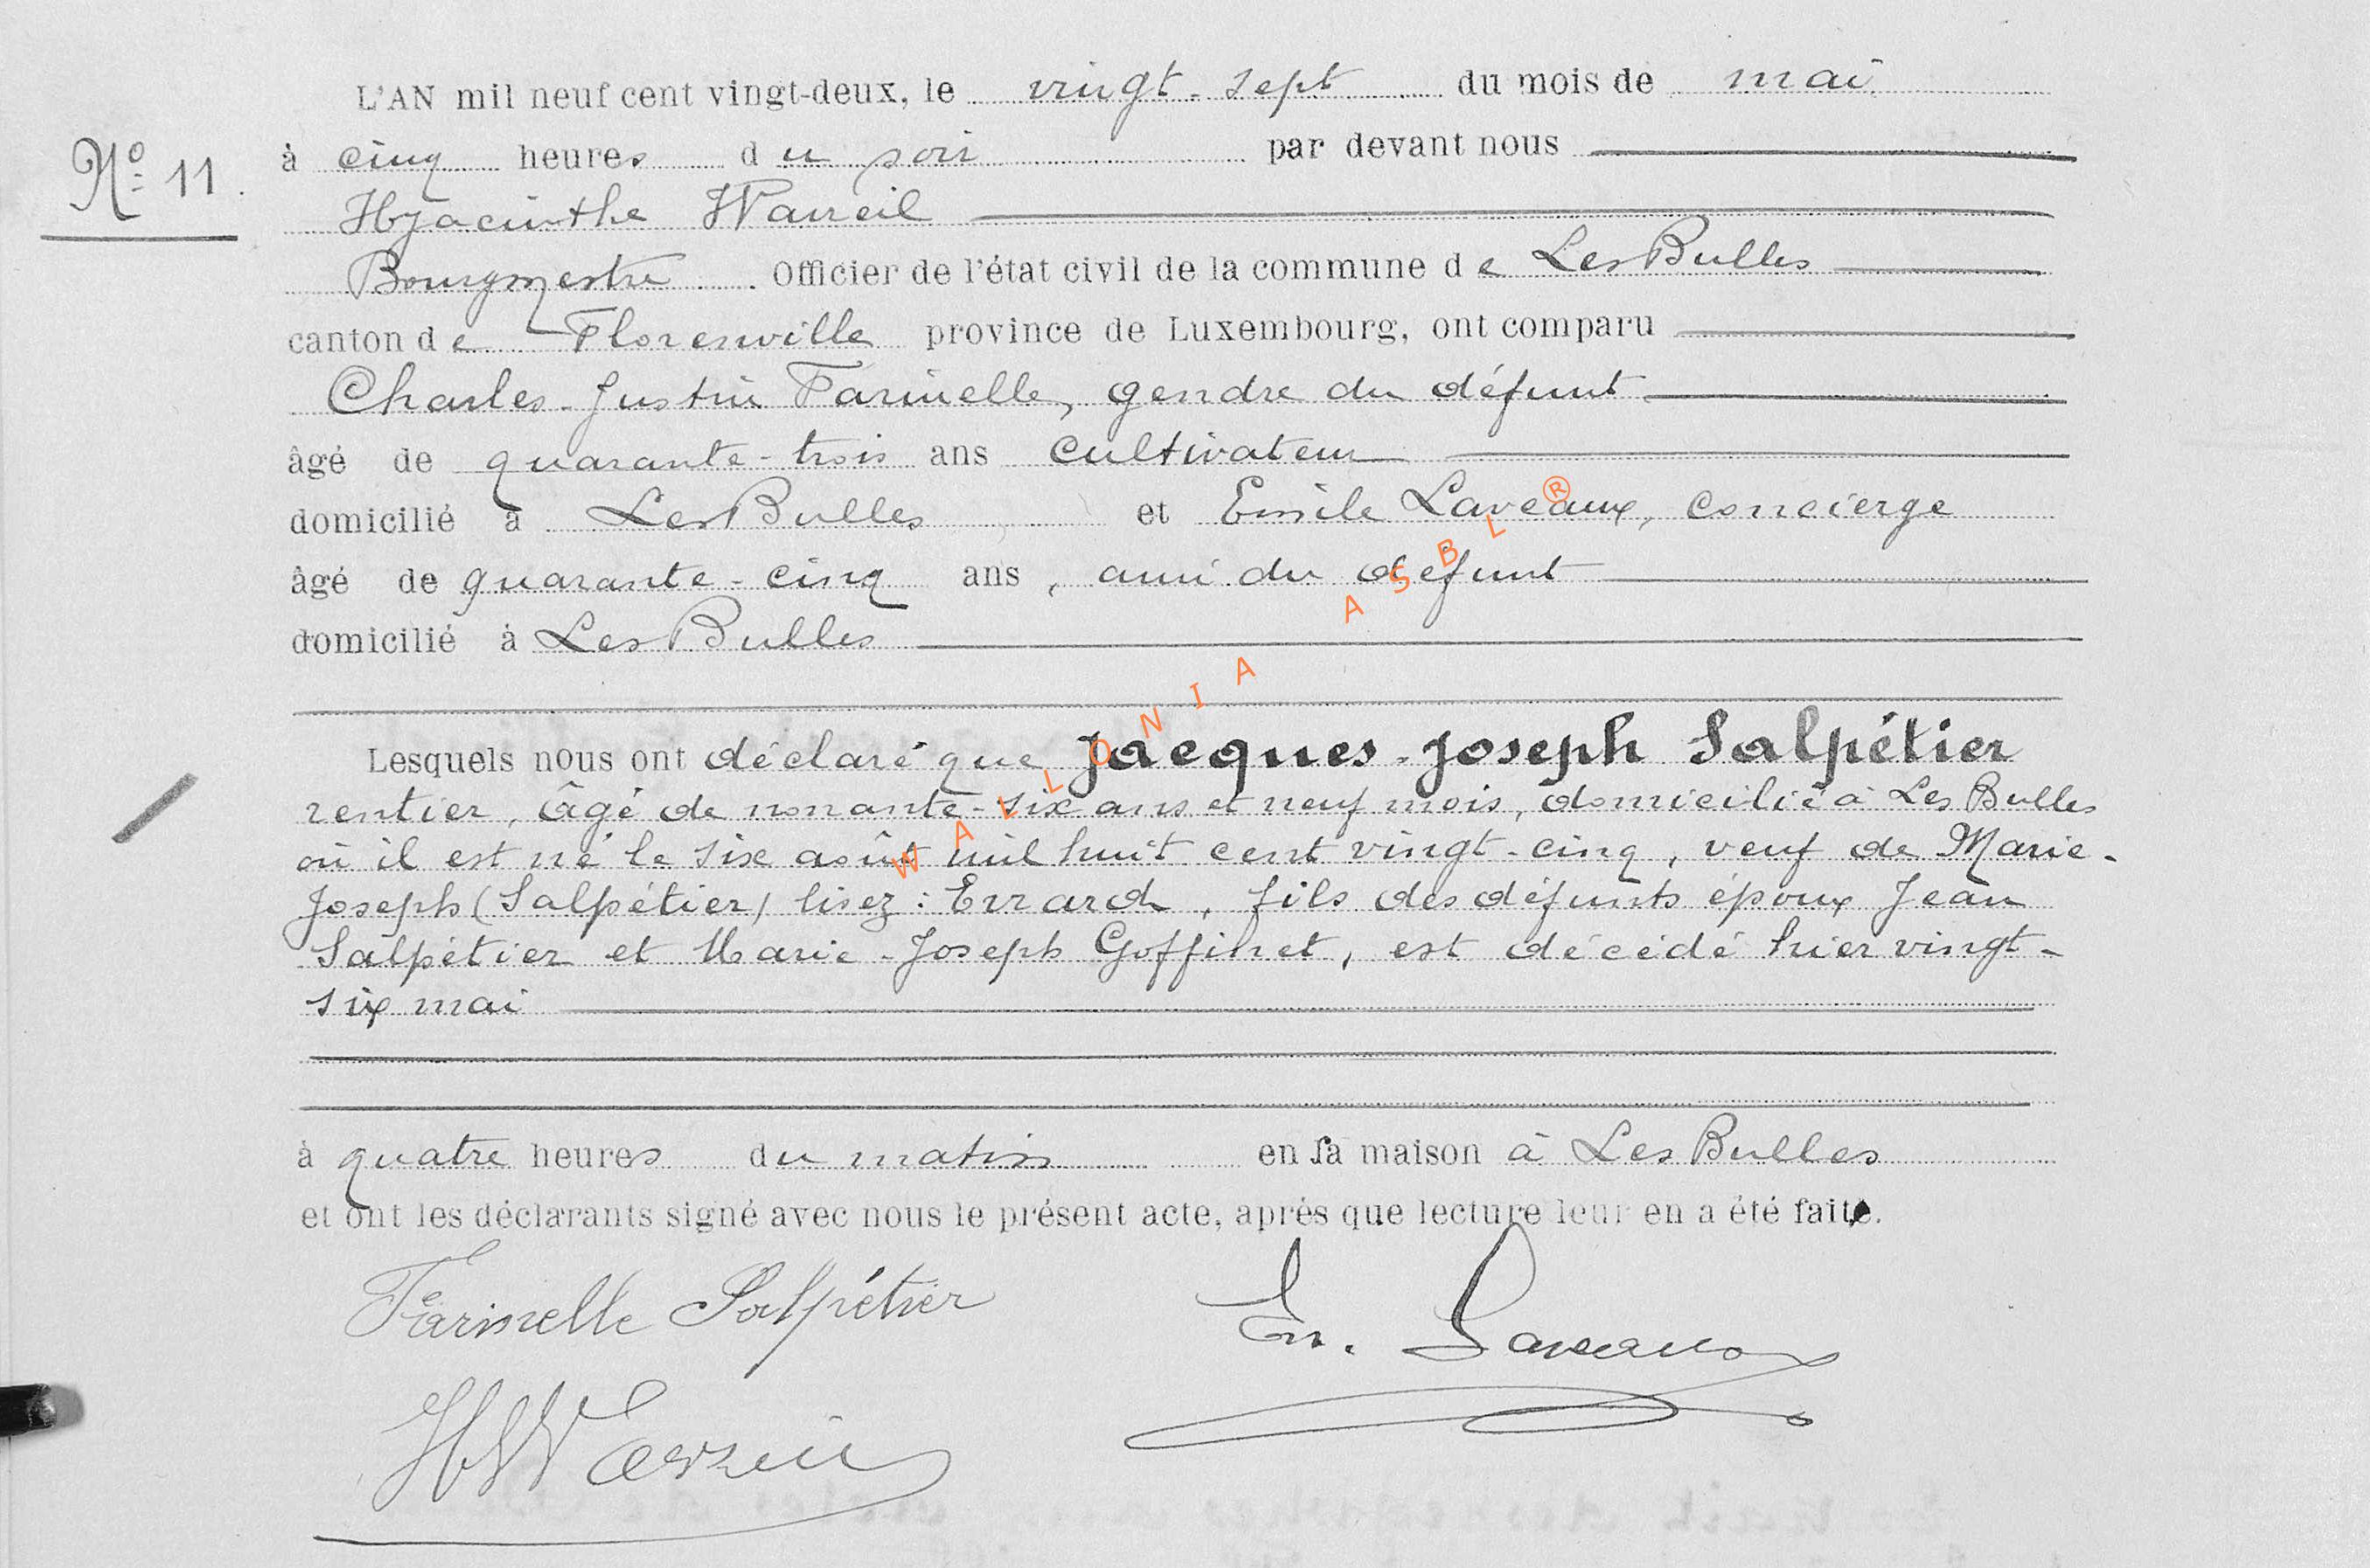 L'AN mil neuf cent vingt-deux, le vingt-sept du mois de mai
Nº 11.
à cinq heures du soir par devant nous
Hyacinthe
Bourgmestre Officier de l'état civil de la commune de Les Bulles
canton de Florenville province de Luxembourg, ont comparu
Charles-Justin Farinelle, gendre du défunt
âgé de quarante-trois ans cultivateur
domicilié à Les Bulles et Emile Laveaux, concierge
âgé de quarante-cinq ans, ami du défunt
domicilié à Les Bulles
Lesquels nous ont déclaré que Jacques-Joseph Salpétier
rentier, âgé de nonante-six ans et neuf mois, domicilié à Les Bulles
où il est né le six août mil huit cent vingt-cinq, veuf de Marie-
Joseph (Salpétier) lisez : Errard, fils des défunts époux Jean
Salpétier et Marie-Joseph Goffinet, est décédé hier vingt-
six mai
à quatre heures du matin en sa maison à Les Bulles
et ont les déclarants signé avec nous le présent acte, après que lecture leur en a été faite.
Farinelle Salpétier
Em. Laveaux
WALLONIA ASBL ®